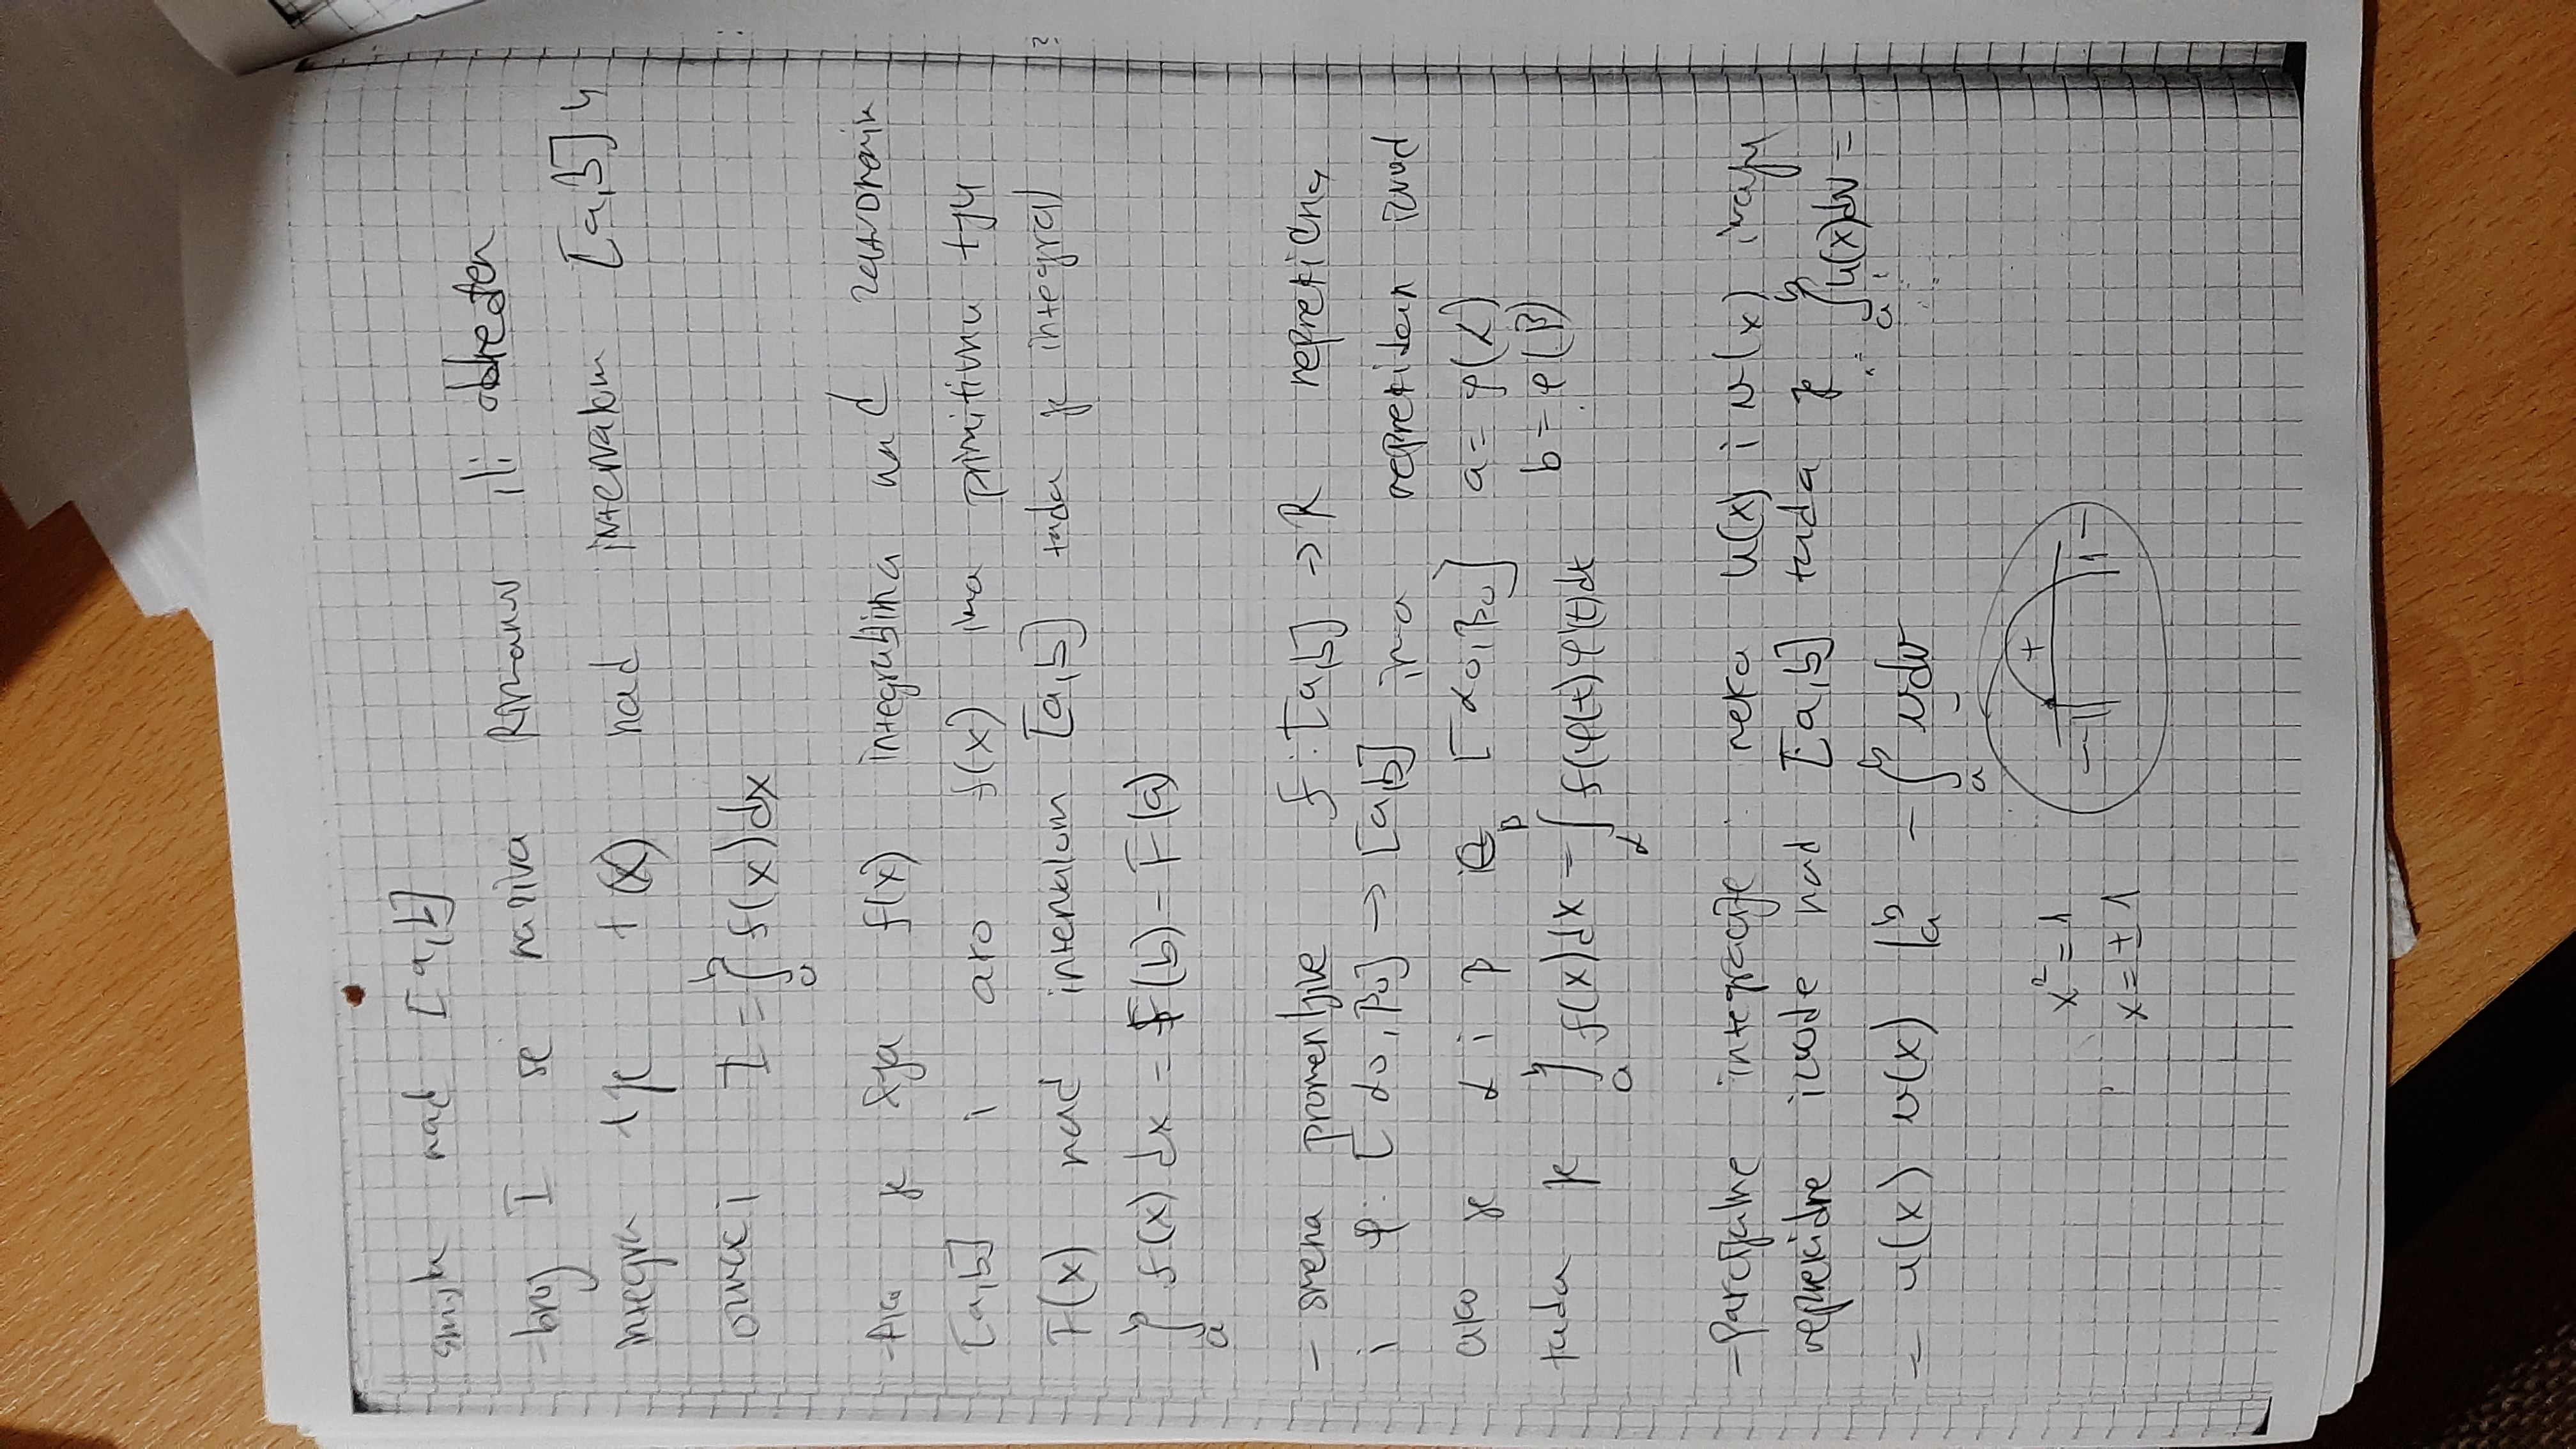 smislu nad [a,b]
-broj I se naziva Rimanov ili određen
integra fje f(x) nad intervalom [a,b] u
oznaci I = ∫_a^b f(x)dx
-Ako je fja f(x) integrabilna nad zatvorenim
[a,b] i ako f(x) ima primitivnu fju
F(x) nad intervalom [a,b] tada je integral
∫_a^b f(x) dx = F(b) - F(a)
- smena promenljive f: [a,b] → R neprekidna
i φ: [α0, β0] → [a,b] ima neprekidan izvod
ako je α i β ∈ [α0, β0] a = φ(α)
b = φ(β)
tada je ∫_a^b f(x)dx = ∫_α^β f(φ(t) φ'(t)dt
-Parcijalne integracije: neka u(x) i v(x) imaju
neprekidne izvode nad [a,b] tada je ∫_a^b u(x)dv =
= u(x) v(x) |_a^b - ∫_a^b vdu
x² = 1
x = ± 1
+
- -1 1 -